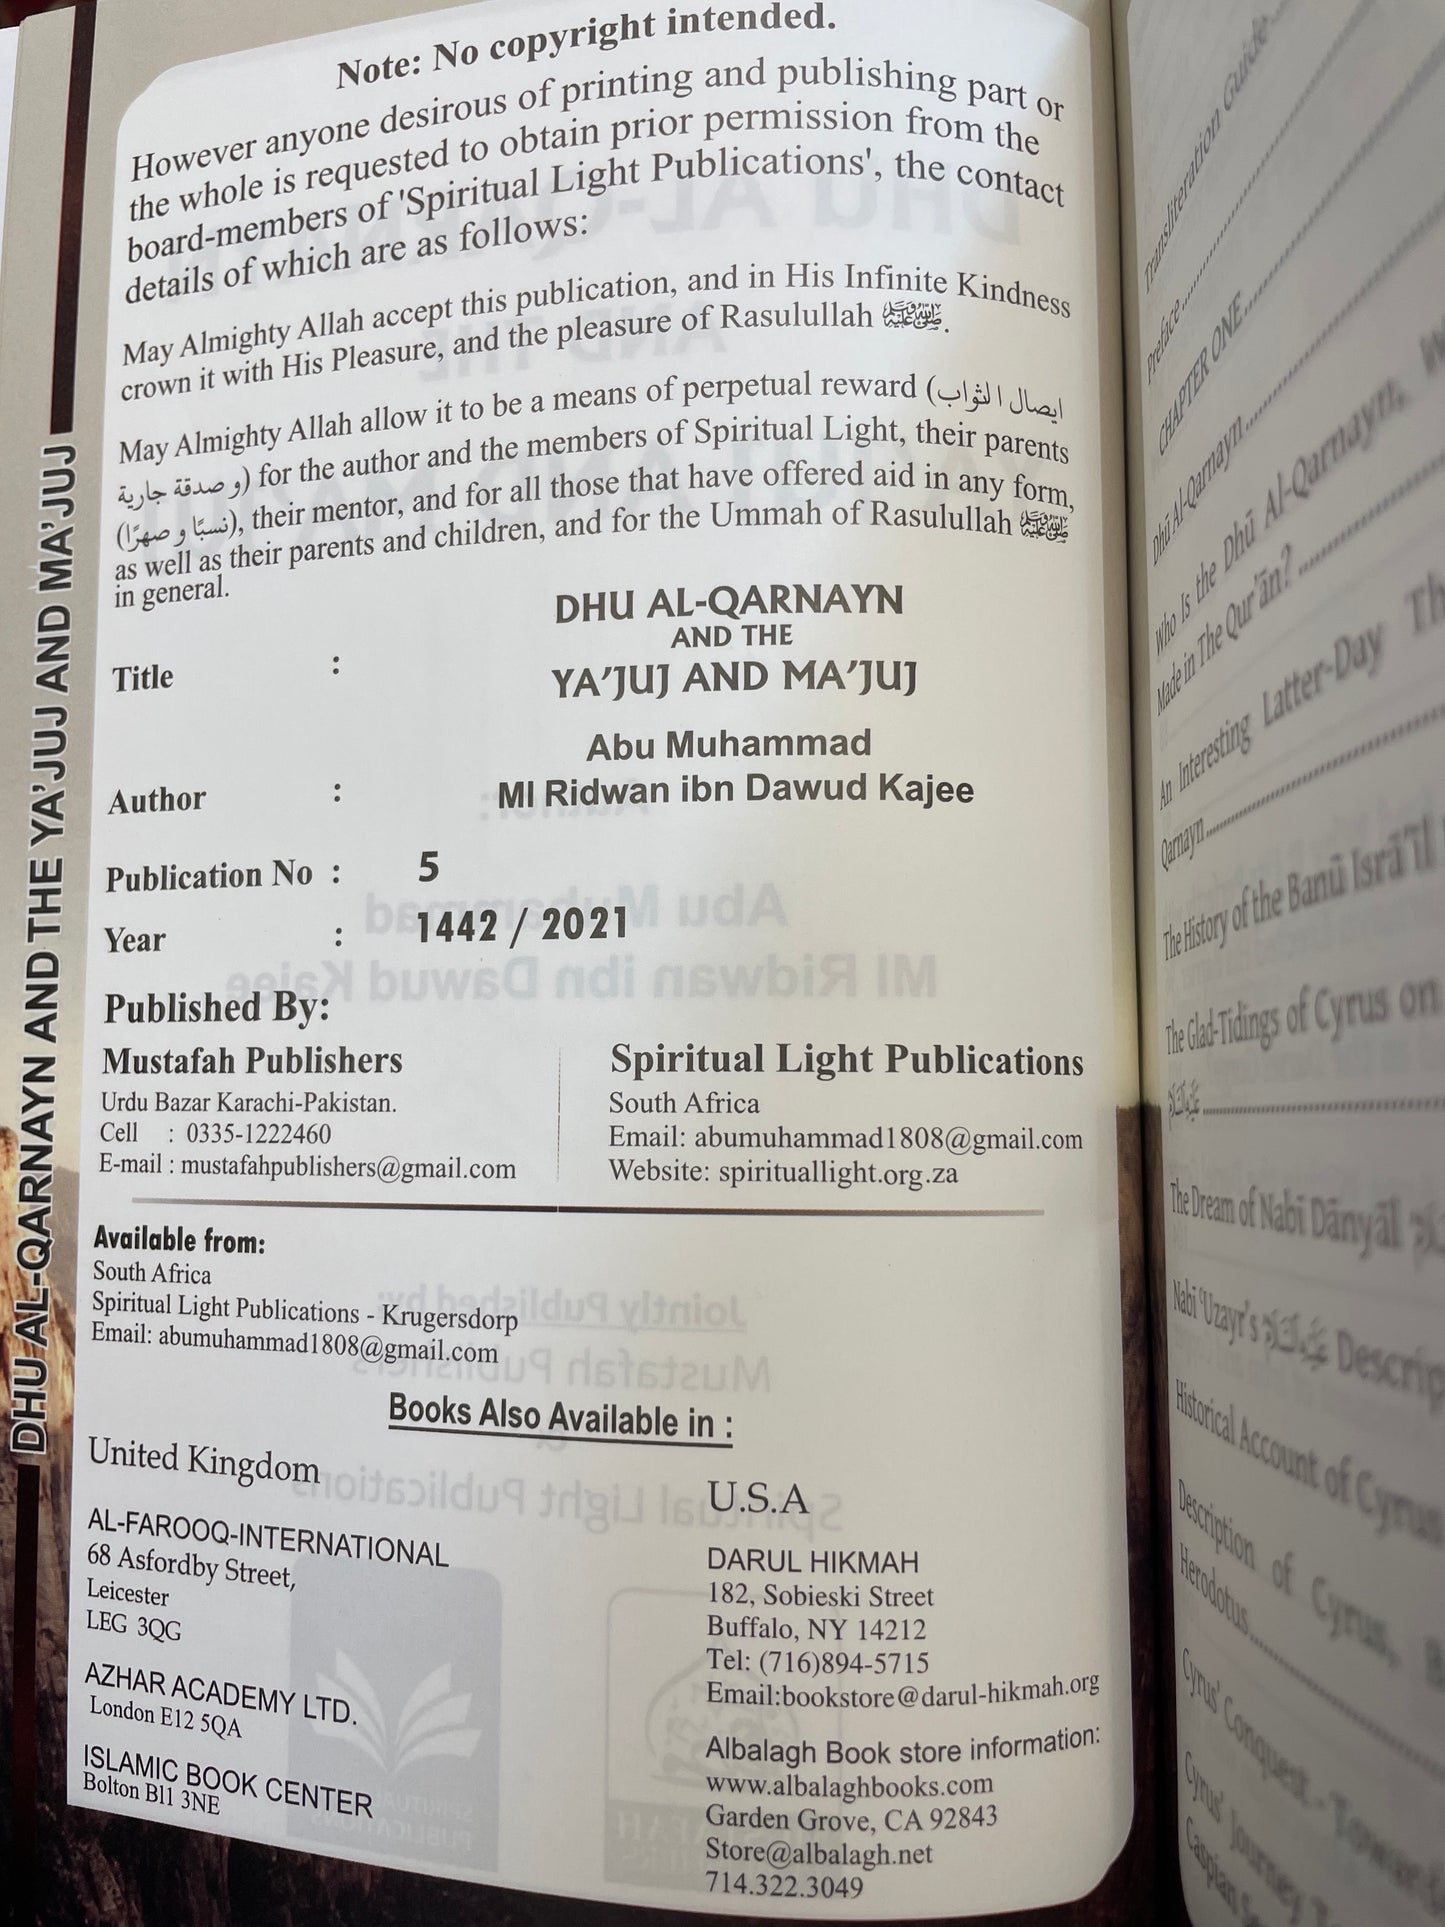 Note: No copyright intended.
However anyone desirous of printing and publishing part or
the whole is requested to obtain prior permission from the
board-members of 'Spiritual Light Publications', the contact
details of which are as follows:
May Almighty Allah accept this publication, and in His Infinite Kindness
crown it with His Pleasure, and the pleasure of Rasulullah ﷺ.
May Almighty Allah allow it to be a means of perpetual reward (ايصال الثواب
و صدقة جارية) for the author and the members of Spiritual Light, their parents
(نسبًا و صهرًا), their mentor, and for all those that have offered aid in any form,
as well as their parents and children, and for the Ummah of Rasulullah ﷺ
in general.
Title : DHU AL-QARNAYN
AND THE
YA'JUJ AND MA'JUJ
Abu Muhammad
Author : MI Ridwan ibn Dawud Kajee
Publication No : 5
Year : 1442 / 2021
Published By:
Mustafah Publishers
Urdu Bazar Karachi-Pakistan.
Cell : 0335-1222460
E-mail : mustafahpublishers@gmail.com
Spiritual Light Publications
South Africa
Email: abumuhammad1808@gmail.com
Website: spirituallight.org.za
Available from:
South Africa
Spiritual Light Publications - Krugersdorp
Email: abumuhammad1808@gmail.com
Books Also Available in :
United Kingdom
AL-FAROOQ-INTERNATIONAL
68 Asfordby Street,
Leicester
LEG 3QG
AZHAR ACADEMY LTD.
London E12 5QA
ISLAMIC BOOK CENTER
Bolton Bl1 3NE
U.S.A
DARUL HIKMAH
182, Sobieski Street
Buffalo, NY 14212
Tel: (716)894-5715
Email:bookstore@darul-hikmah.org
Albalagh Book store information:
www.albalaghbooks.com
Garden Grove, CA 92843
Store@albalagh.net
714.322.3049
DHU AL-QARNAYN AND THE YA'JUJ AND MA'JUJ
Transliteration Guide
Preface
CHAPTER ONE
Dhū Al-Qarnayn
Who Is the Dhū Al-Qarnayn,
Made in The Qur'ān?
An Interesting Latter-Day
Qarnayn
The History of the Banū Isrā'īl
The Glad-Tidings of Cyrus on
The Dream of Nabī Dānyāl
Nabī 'Uzayr's
Historical Account of Cyrus
Description of Cyrus,
Herodotus
Cyrus' Conquest -
Cyrus' Journey
Caspian